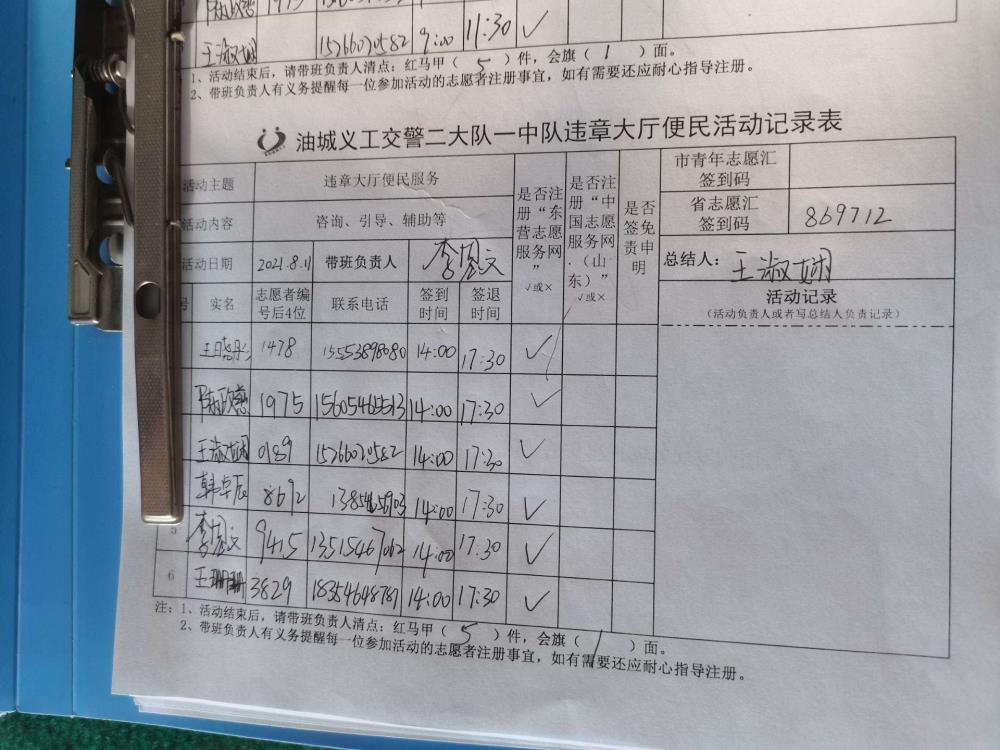 王淑娴 15266021582 9:00 11:30 ✓
1、活动结束后，请带班负责人清点：红马甲（ 5 ）件，会旗（ 1 ）面。
2、带班负责人有义务提醒每一位参加活动的志愿者注册事宜，如有需要还应耐心指导注册。
油城义工交警二大队一中队违章大厅便民活动记录表
活动主题 违章大厅便民服务
活动内容 咨询、引导、辅助等
活动日期 2021.8.11 带班负责人
号 实名 志愿者编号后4位 联系电话 签到时间 签退时间
是否注册“东营志愿服务网” √或×
是否注册“中国志愿服务网（山东）” √或×
是否签免责申明
市青年志愿汇签到码
省志愿汇签到码 869712
总结人： 王淑娴
活动记录
（活动负责人或者写总结人负责记录）
1478 14:00 17:30 ✓
1975 15605465513 14:00 17:30 ✓
王淑娴 0189 15266021582 14:00 17:30 ✓
韩卓辰 8692 14:00 17:30 ✓
5 9415 13515467062 14:00 17:30 ✓
6 王珊珊 3829 18354648787 14:00 17:30 ✓
注：1、活动结束后，请带班负责人清点：红马甲（ 5 ）件，会旗（ 1 ）面。
2、带班负责人有义务提醒每一位参加活动的志愿者注册事宜，如有需要还应耐心指导注册。